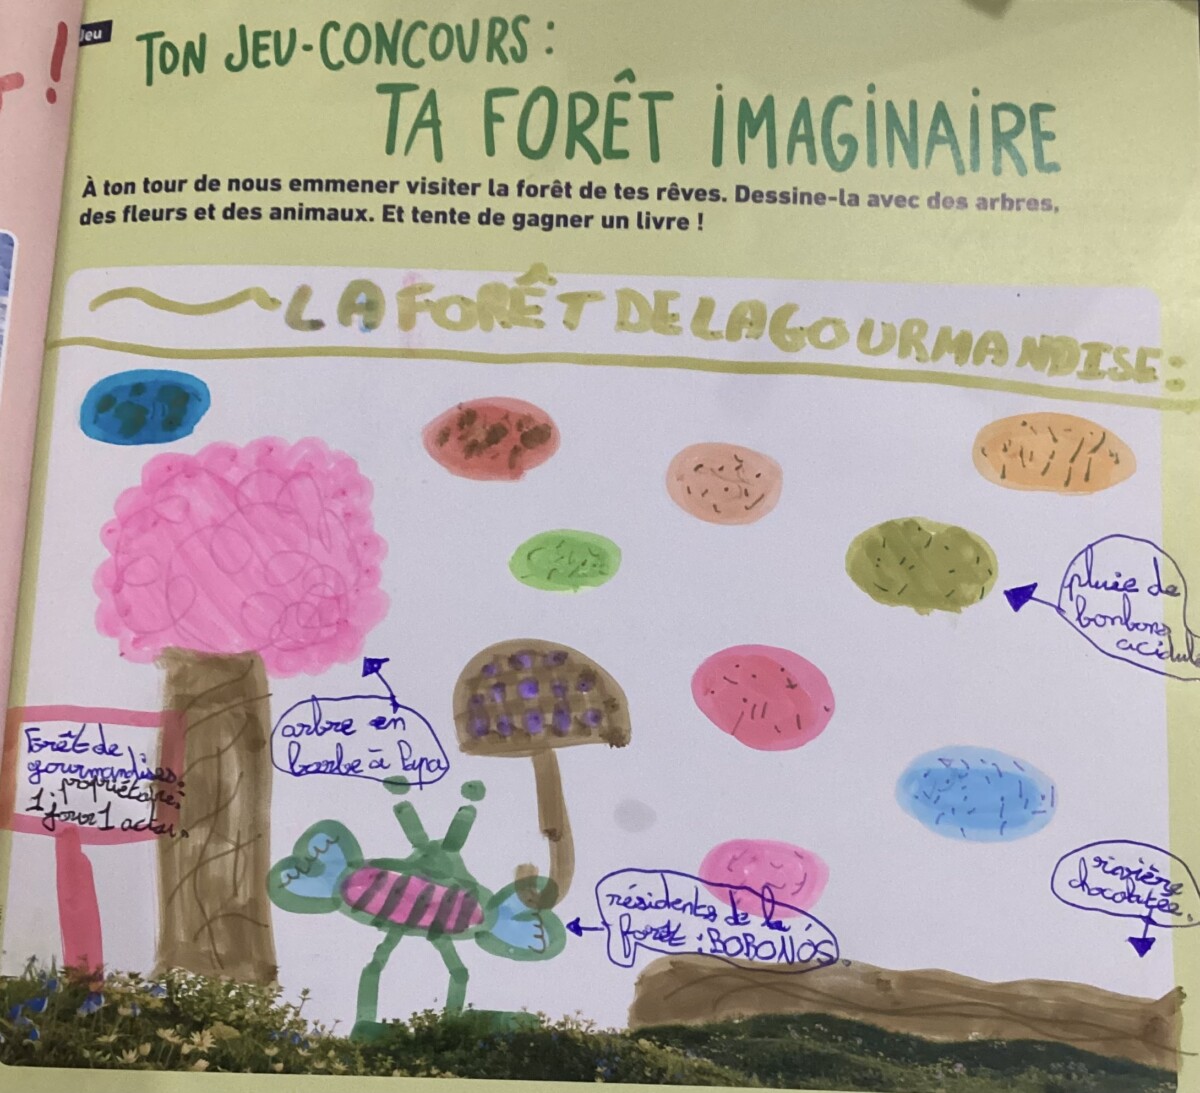 Jeu
TON JEU-CONCOURS :
TA FORÊT IMAGINAIRE
À ton tour de nous emmener visiter la forêt de tes rêves. Dessine-la avec des arbres,
des fleurs et des animaux. Et tente de gagner un livre !
LA FORÊT DE LA GOURMANDISE :
pluie de
bonbons
acidul
arbre en
barbe à Papa
Forêt de
gourmandises.
propriétaire:
1 jour 1 actu.
résidents de la
forêt : BOBONOS.
rivière
chocolatée.